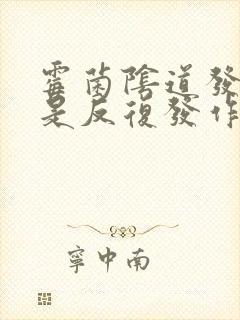 霉菌陰道發
是反復發作
寧中南